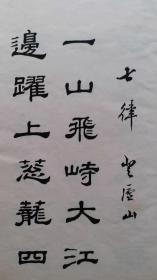 七律 登廬山
一山飛峙大江
邊躍上葱蘢四